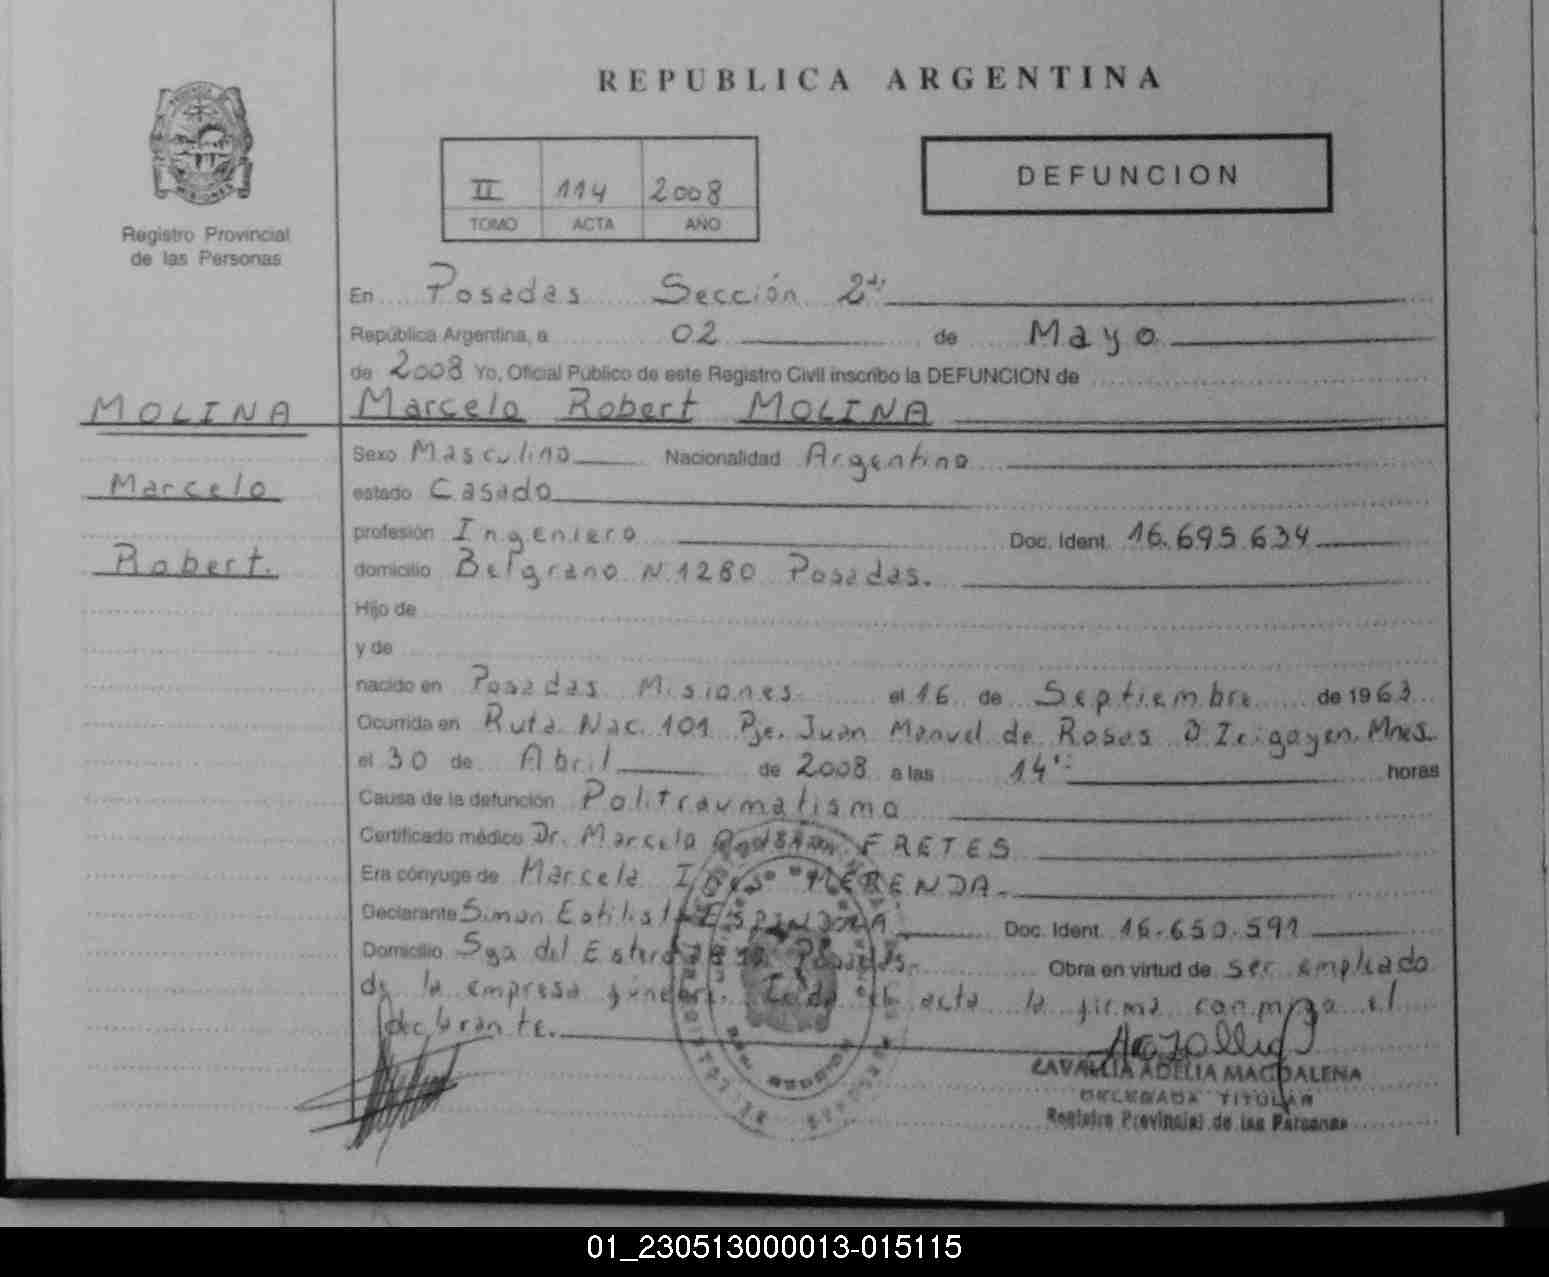 REPUBLICA ARGENTINA
Registro Provincial
de las Personas
II 114 2008
TOMO ACTA AÑO
DEFUNCION
En Posadas Sección 2da
República Argentina, a 02 de Mayo
de 2008 Yo, Oficial Público de este Registro Civil inscribo la DEFUNCION de
MOLINA Marcelo Robert MOLINA
Sexo Masculino Nacionalidad Argentino
Marcelo
estado Casado
profesión Ingeniero Doc. Ident. 16.695.634
Robert.
domicilio Belgrano N.1280 Posadas.
Hijo de
y de
nacido en Posadas Misiones el 16 de Septiembre de 1963
Ocurrida en Ruta Nac. 101 Pje. Juan Manuel de Rosas Mnes.
el 30 de Abril de 2008 a las 14 horas
Causa de la defunción Politraumatismo
Certificado médico Dr. Marcelo FRETES
Era cónyuge de Marcela MERENDA.
Declarante Simon ESPINDOLA Doc. Ident. 16.650.591
Domicilio Sgo del Estero Posadas. Obra en virtud de ser empleado
de la empresa acta la firma conmigo el
declarante.
CAVALLIA ADELIA MAGDALENA
DELEGADA TITULAR
Registro Provincial de las Personas
01_230513000013-015115